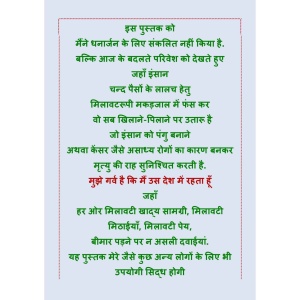 इस पुस्तक को
मैंने धनार्जन के लिए संकलित नहीं किया है.
बल्कि आज के बदलते परिवेश को देखते हुए
जहाँ इंसान
चन्द पैसों के लालच हेतु
मिलावटरुपी मकड़जाल में फंस कर
वो सब खिलाने-पिलाने पर उतारू है
जो इंसान को पंगु बनाने
अथवा कैंसर जैसे असाध्य रोगों का कारण बनकर
मृत्यु की राह सुनिश्चित करती है.
मुझे गर्व है कि मैं उस देश में रहता हूँ
जहाँ
हर ओर मिलावटी खाद्य सामग्री, मिलावटी
मिठाईयाँ, मिलावटी पेय,
बीमार पड़ने पर न असली दवाईयां.
यह पुस्तक मेरे जैसे कुछ अन्य लोगों के लिए भी
उपयोगी सिद्ध होगी